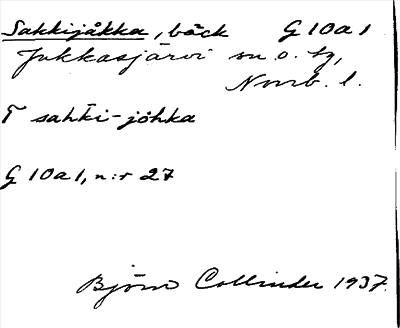 Sakkijåkka, bäck G 10 a 1
Jukkasjärvi sn o. tg,
Norrb. l.
T sahki-jåhka
G 10 a 1, n:r 27
Björn Collinder 1937.